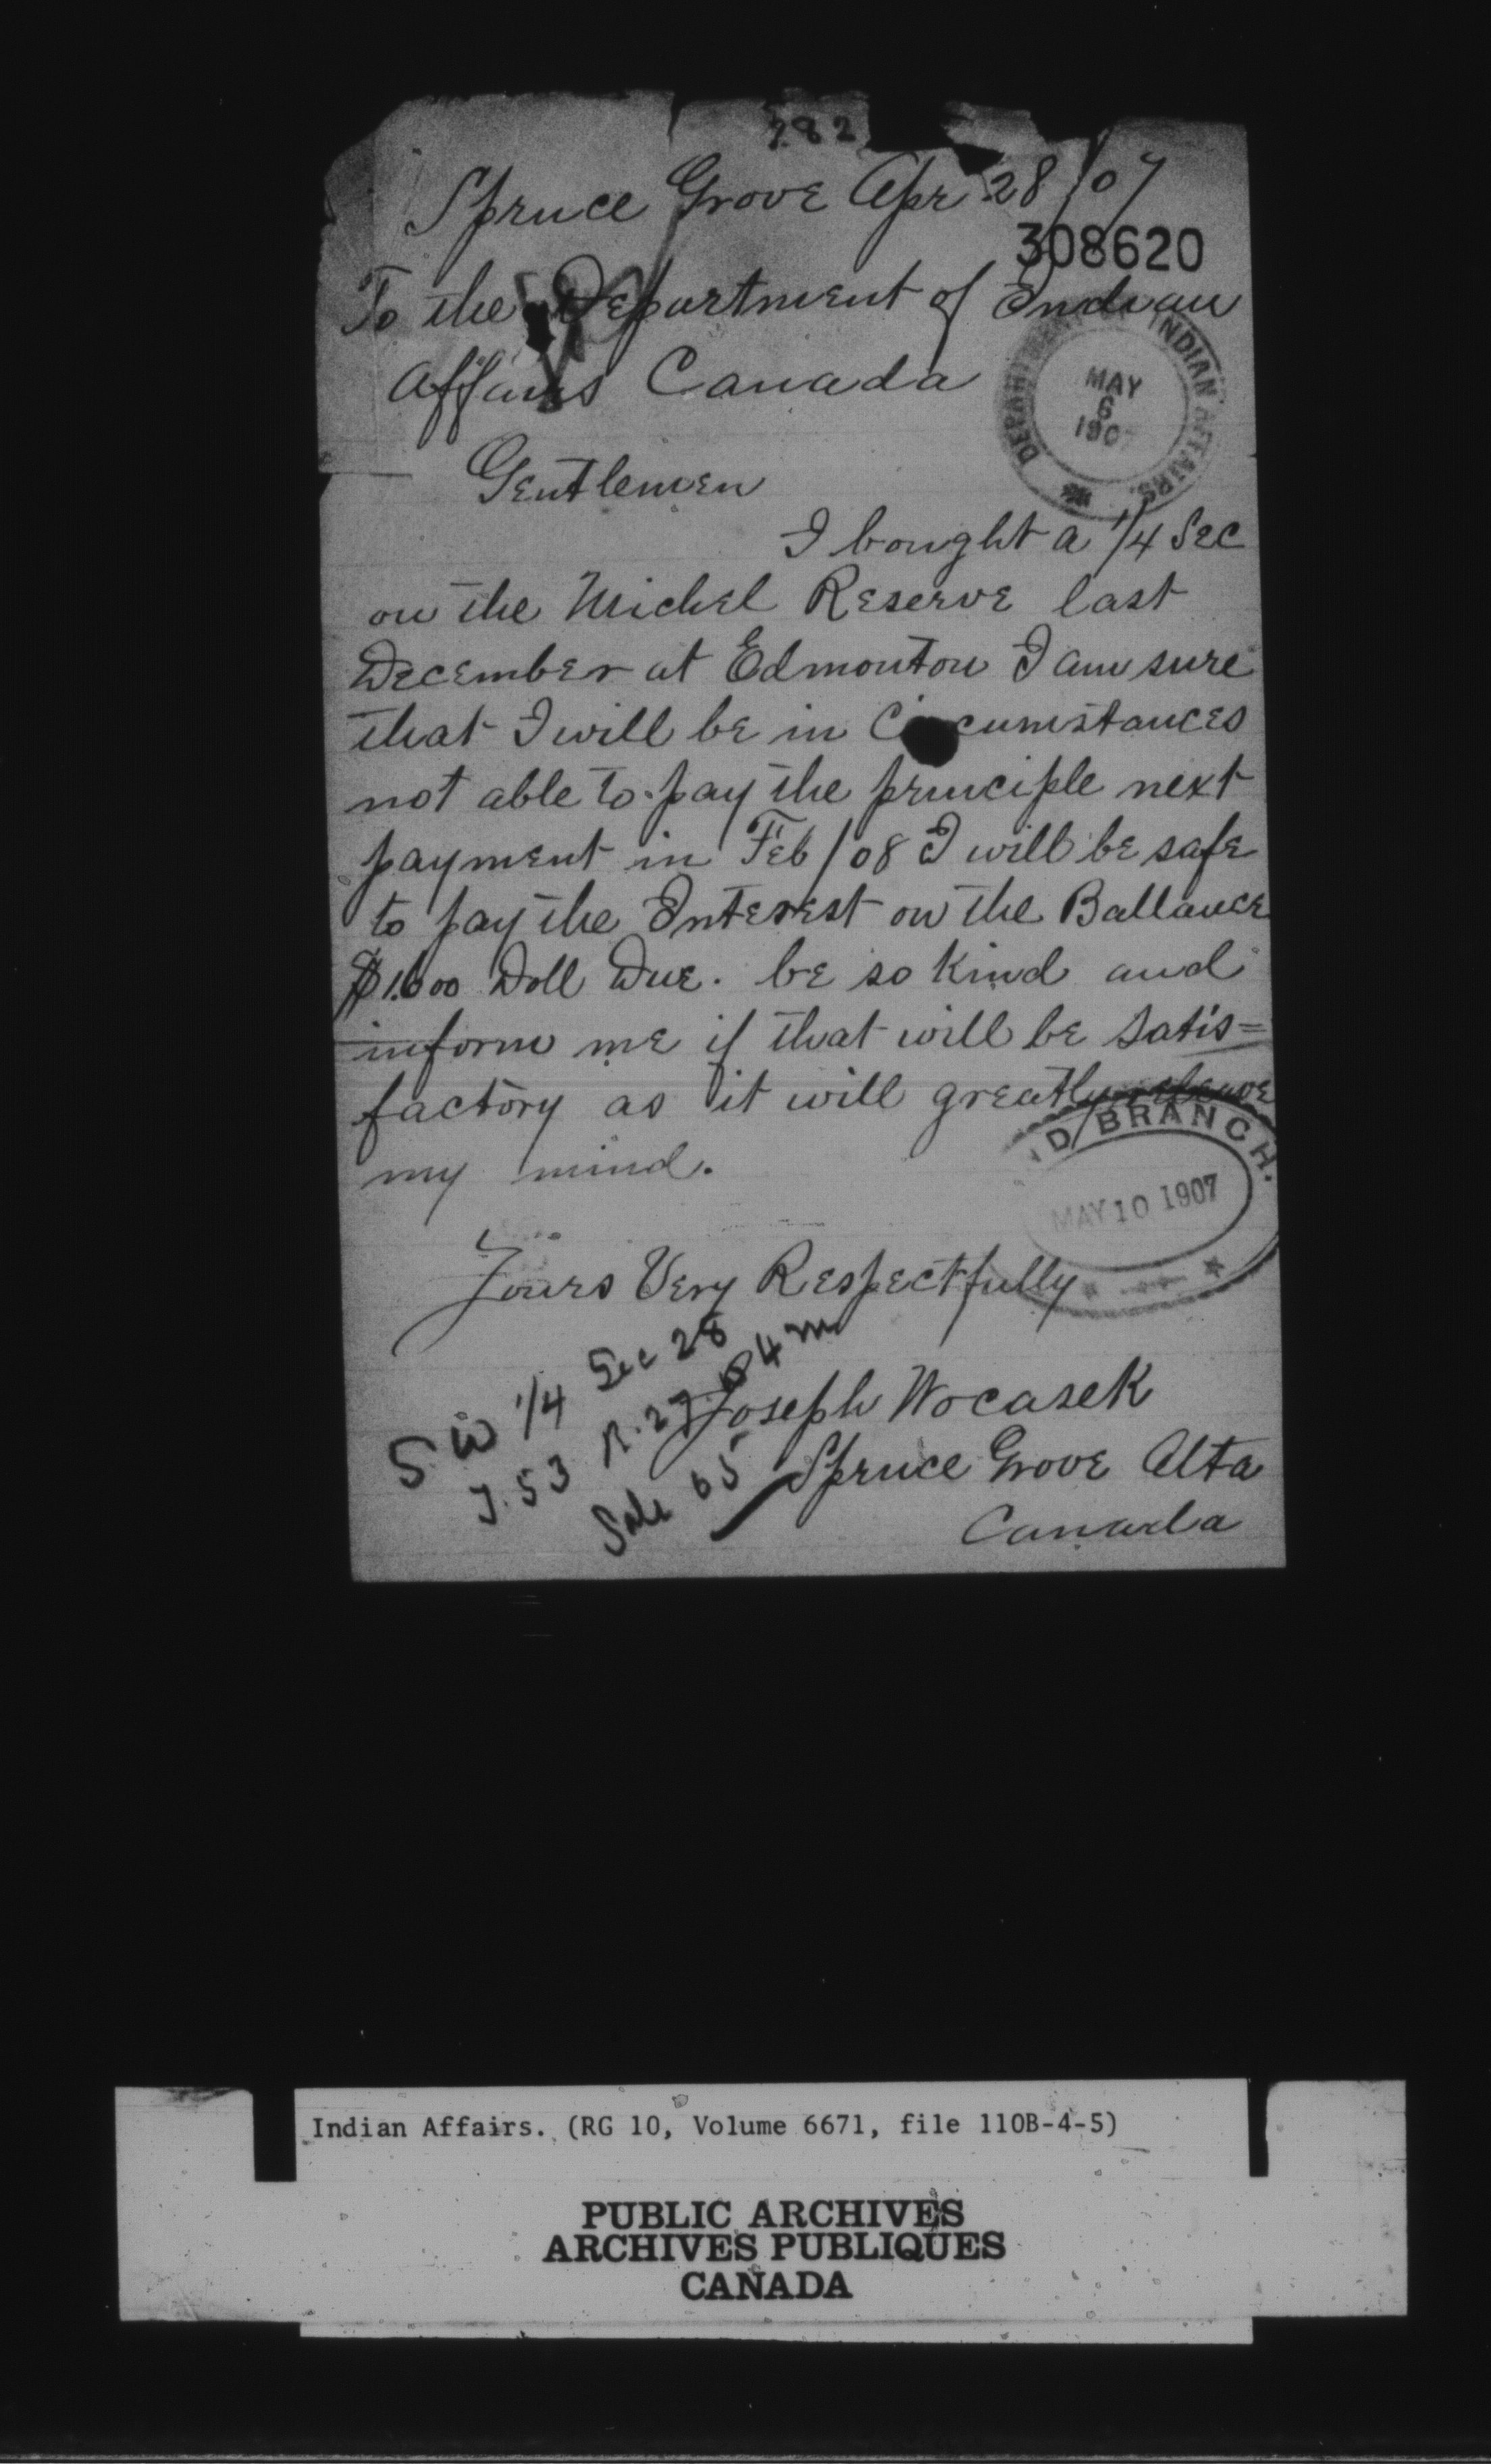 282
Spruce Grove Apr 28/07
308620
To the Department of Indian
Affairs Canada
DEPARTMENT INDIAN AFFAIRS.
MAY
6
190
Gentlemen
I bought a 1/4 Sec
on the Michel Reserve last
December at Edmonton I am sure
that I will be in Circumstances
not able to pay the principle next
payment in Feb/08 I will be safe
to pay the Interest on the Ballance
$1.600 Doll Due. be so Kind and
inform me if that will be satis=
factory as it will greatly releave
my mind.
D BRANCH.
MAY 10 1907
Yours Very Respectfully
S W 1/4 Sec 28
T. 53 R. 27. W 4 m
Sale 65
Joseph Wocasek
Spruce Grove Alta
Canada
Indian Affairs. (RG 10, Volume 6671, file 110B-4-5)
PUBLIC ARCHIVES
ARCHIVES PUBLIQUES
CANADA